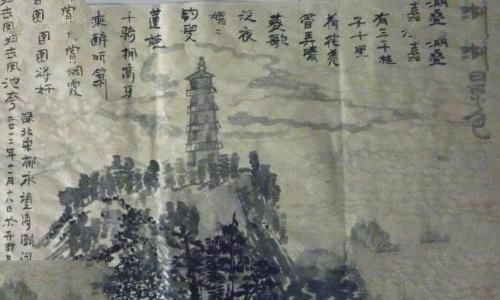 景色
湖叠 湖叠
嘉 嘉
有三千桂
子十里
荷花羌
管弄晴
菱歌
泛夜
嬉〻
钓叟
莲娃
千骑拥高牙
乘醉听箫
赏 赏烟霞
日图 图将好
归去凤归去凤池夸
北宋柳永望海潮词
二〇一二年十一月十八日於开封